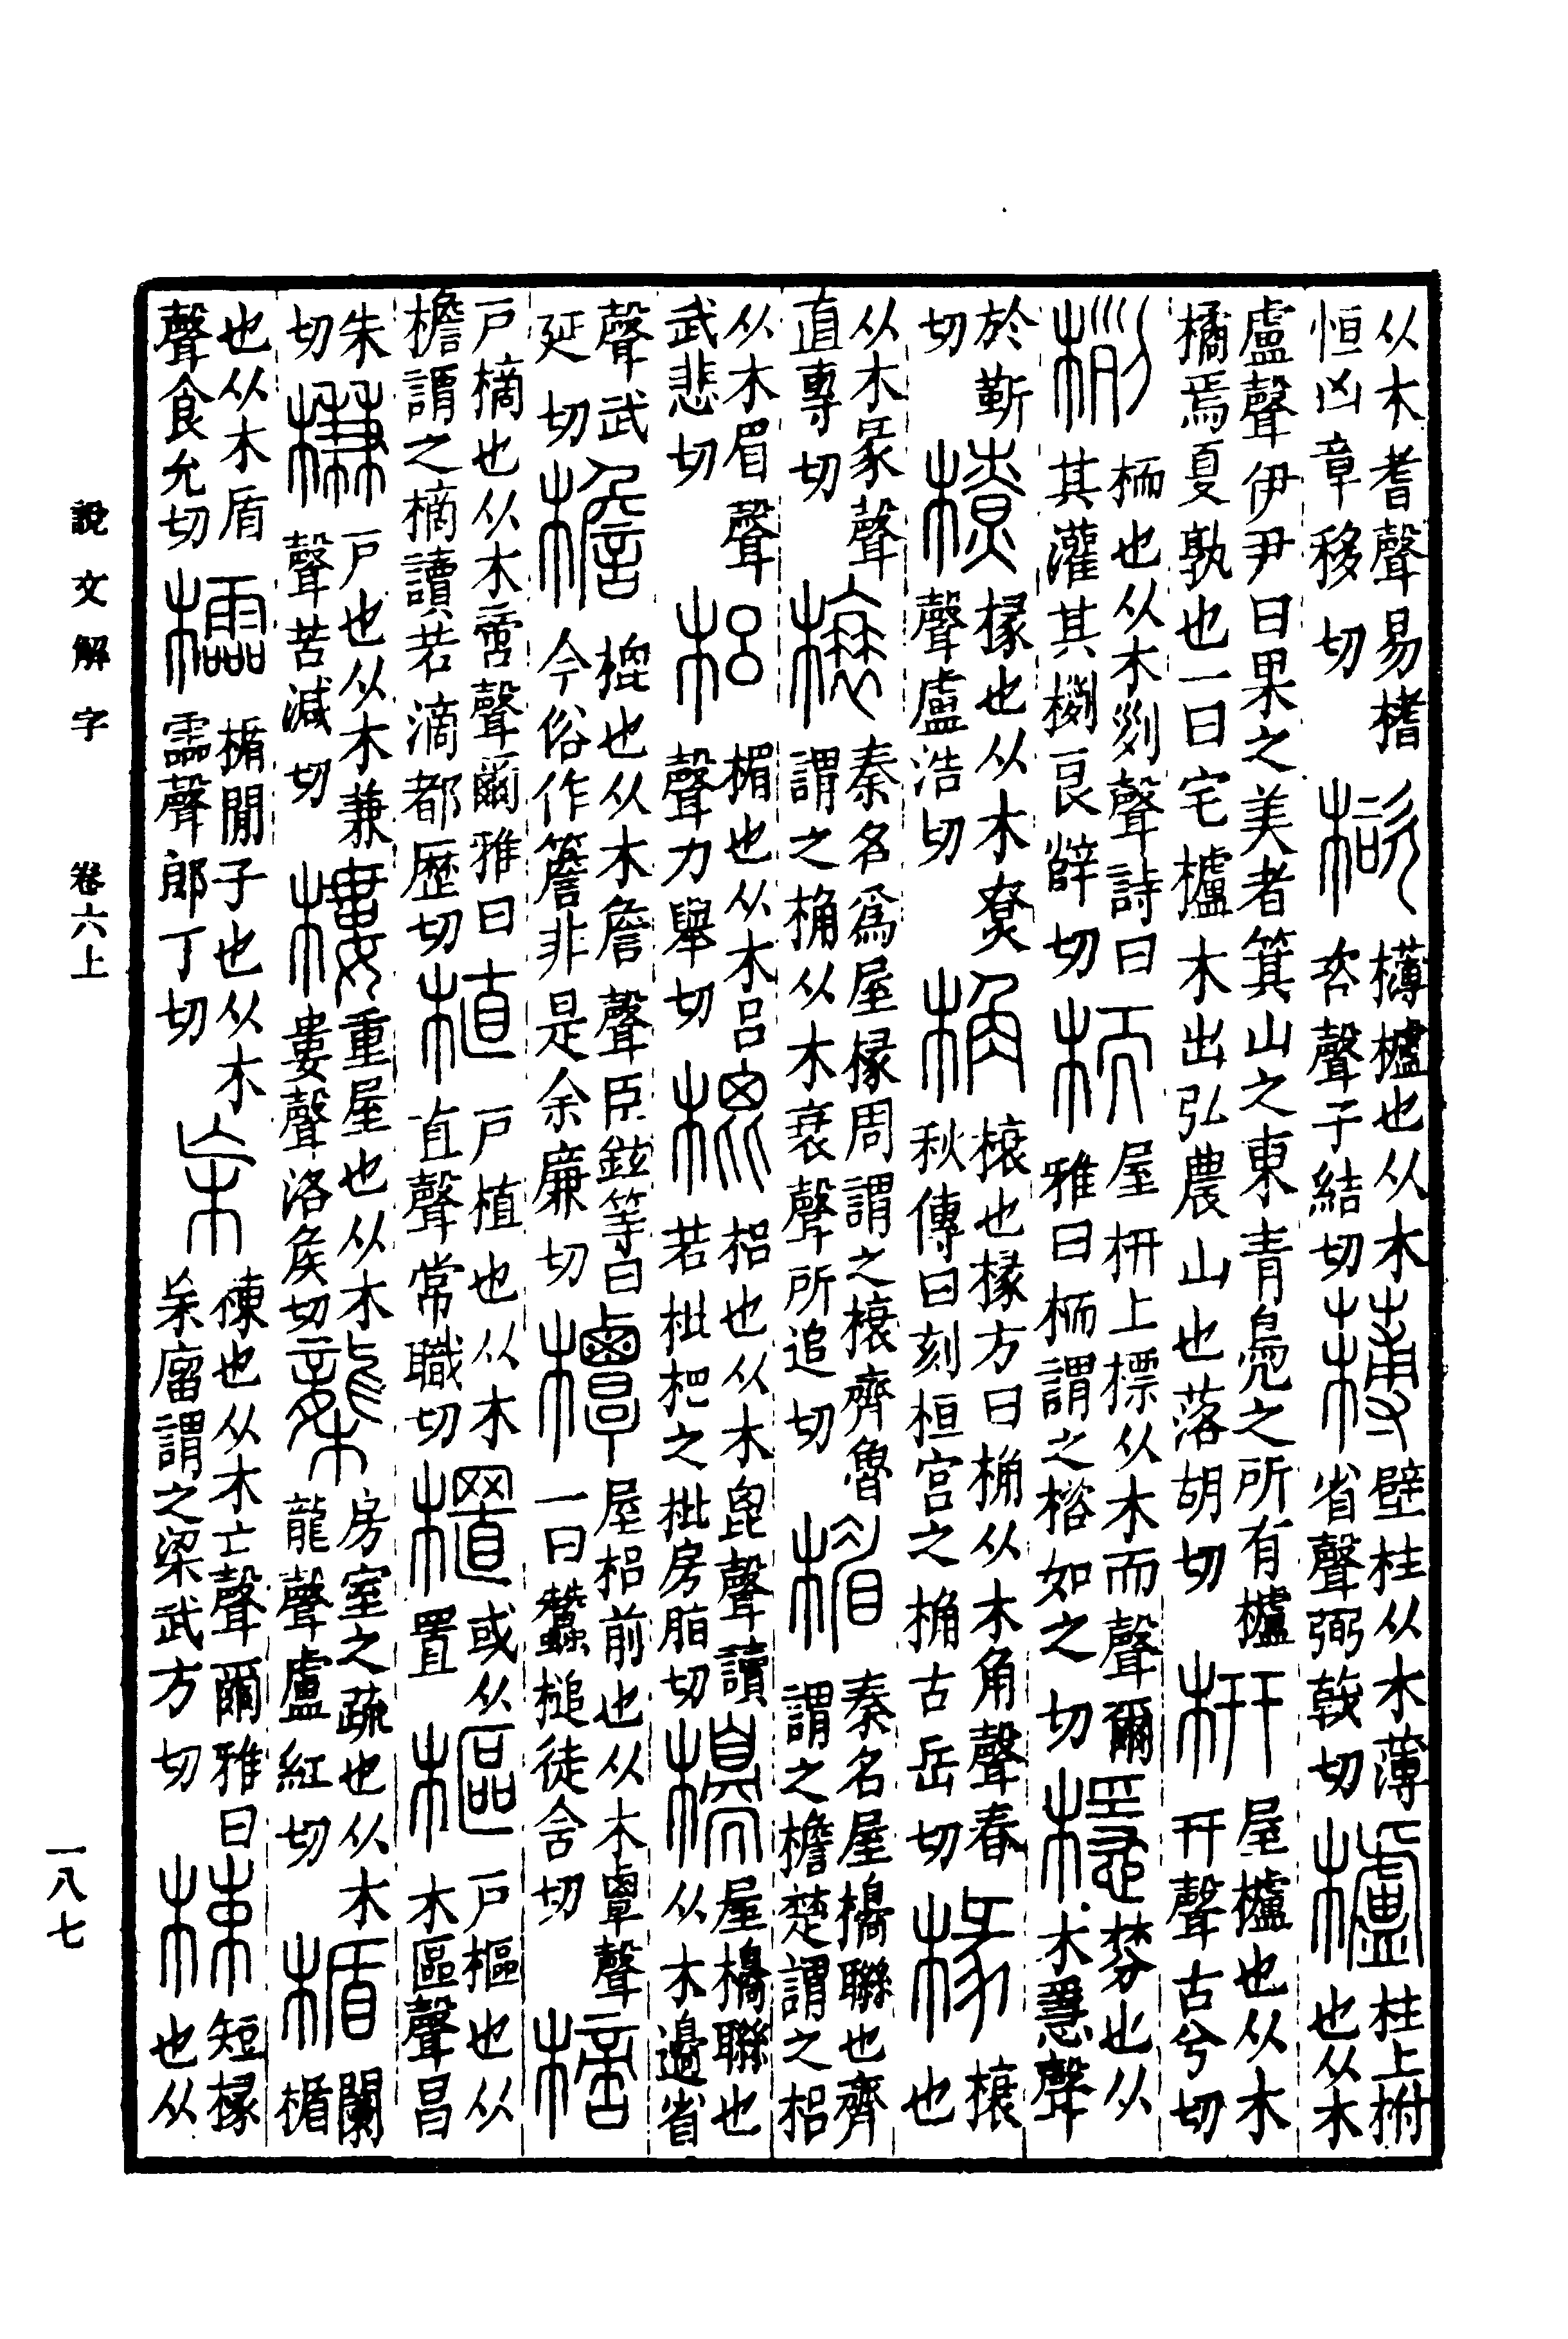 从木耆聲易榰恒凶章移切 楶 欂櫨也从木咨聲子結切 欂 壁柱从木薄省聲弼戟切 櫨 柱上柎也从木
盧聲伊尹曰果之美者箕山之東青鳧之所有櫨橘焉夏孰也一曰宅櫨木出弘農山也落胡切 枅 屋櫨也从木幵聲古兮切
栵 栭也从木列聲詩曰其灌其栵良辥切 栭 屋枅上標从木而聲爾雅曰栭謂之㮤如之切 檼 棼也从木㥯聲
於靳切 橑 椽也从木尞聲盧浩切 桷 榱也椽方曰桷从木角聲春秋傳曰刻桓宮之桷古岳切 椽 榱也
从木彖聲直專切 榱 秦名爲屋椽周謂之榱齊魯謂之桷从木衰聲所追切 楣 秦名屋櫋聯也齊謂之檐楚謂之梠
从木眉聲武悲切 梠 楣也从木呂聲力舉切 㮰 梠也从木𣬉聲讀若枇杷之枇房脂切 櫋 屋櫋聯也从木邊省
聲武延切 檐 㮰也从木詹聲臣鉉等曰今俗作簷非是余廉切 橝 屋梠前也从木覃聲一曰蠶槌徒含切 樀
戶樀也从木啻聲爾雅曰檐謂之樀讀若滴都歷切 植 戶植也从木直聲常職切 㯰 或从置 樞 戶樞也从木區聲昌
朱切 槏 戶也从木兼聲苦減切 樓 重屋也从木婁聲洛矦切 櫳 房室之疏也从木龍聲盧紅切 楯 闌楯
也从木盾聲食允切 櫺 楯閒子也从木霝聲郎丁切 杗 棟也从木亡聲爾雅曰杗廇謂之梁武方切 梀 短椽也从
說文解字 卷六上
一八七